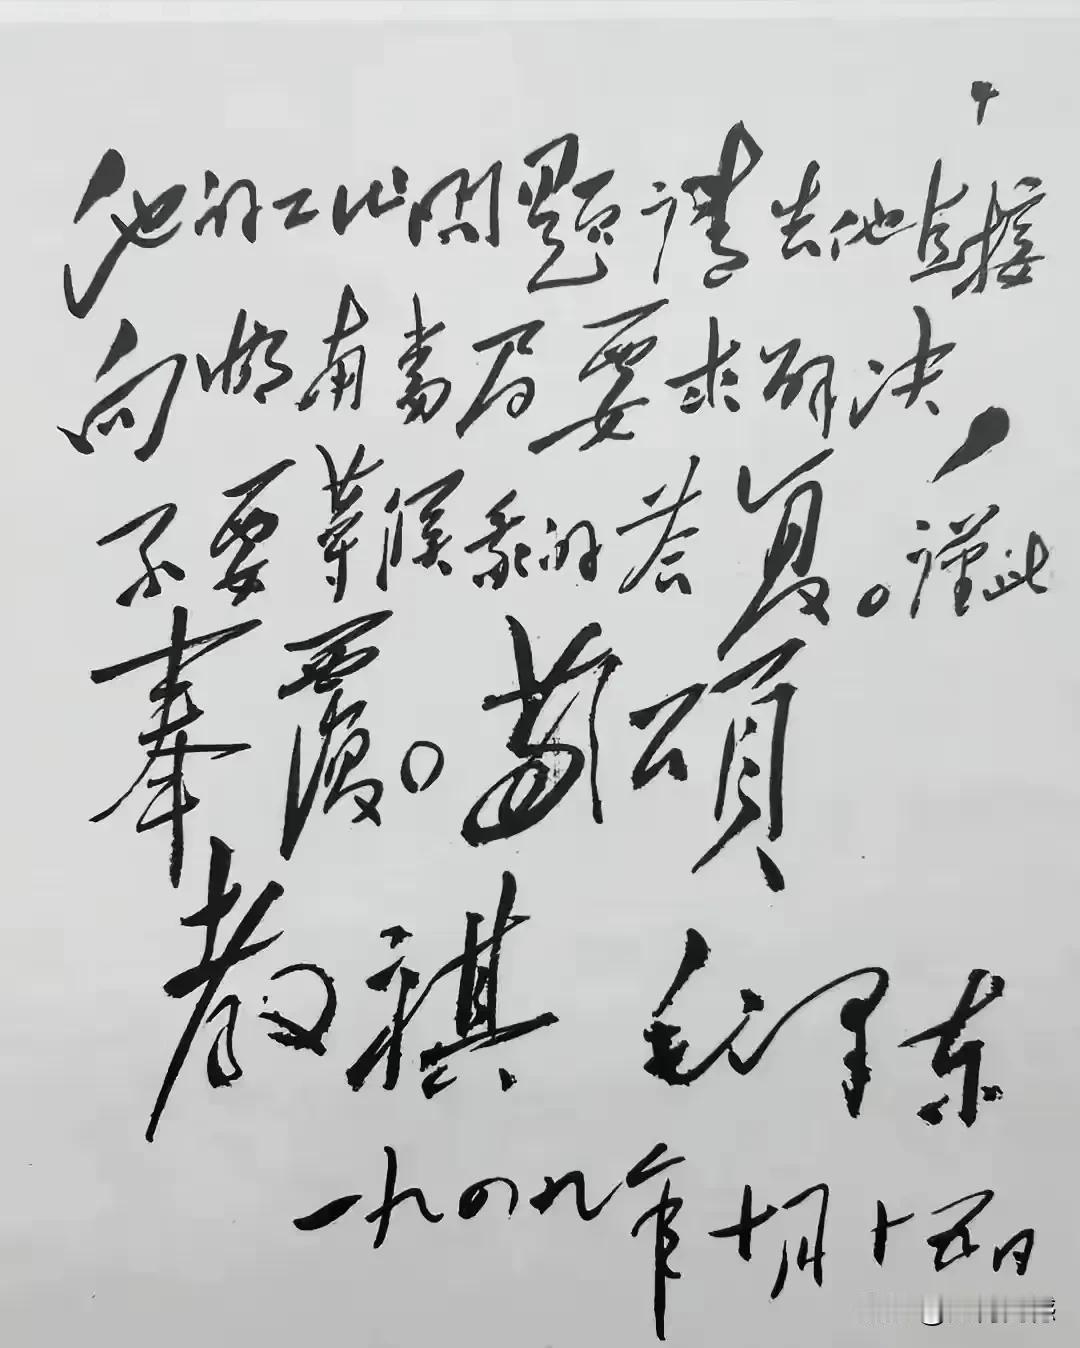 他的工作問題请告他直接
向湖南当局要求解决，
不要等候我的荅复。谨此
奉覆。敬頌
教祺 毛泽东
一九四九年十月十五日